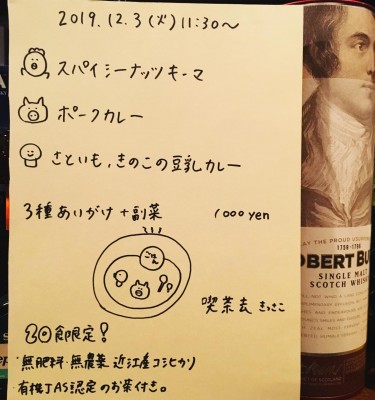 2019.12.3(火)11:30〜
スパイシーナッツキーマ
ポークカレー
さといも,きのこの豆乳カレー
3種あいがけ+副菜 1000yen
ごはん
喫茶去 きっさこ
20食限定!
無肥料・無農薬 近江産コシヒカリ
有機JAS認定のお茶付き。
MAY THE PROUD
1759-1796
OBERT BU
SINGLE MALT
SCOTCH WHISK